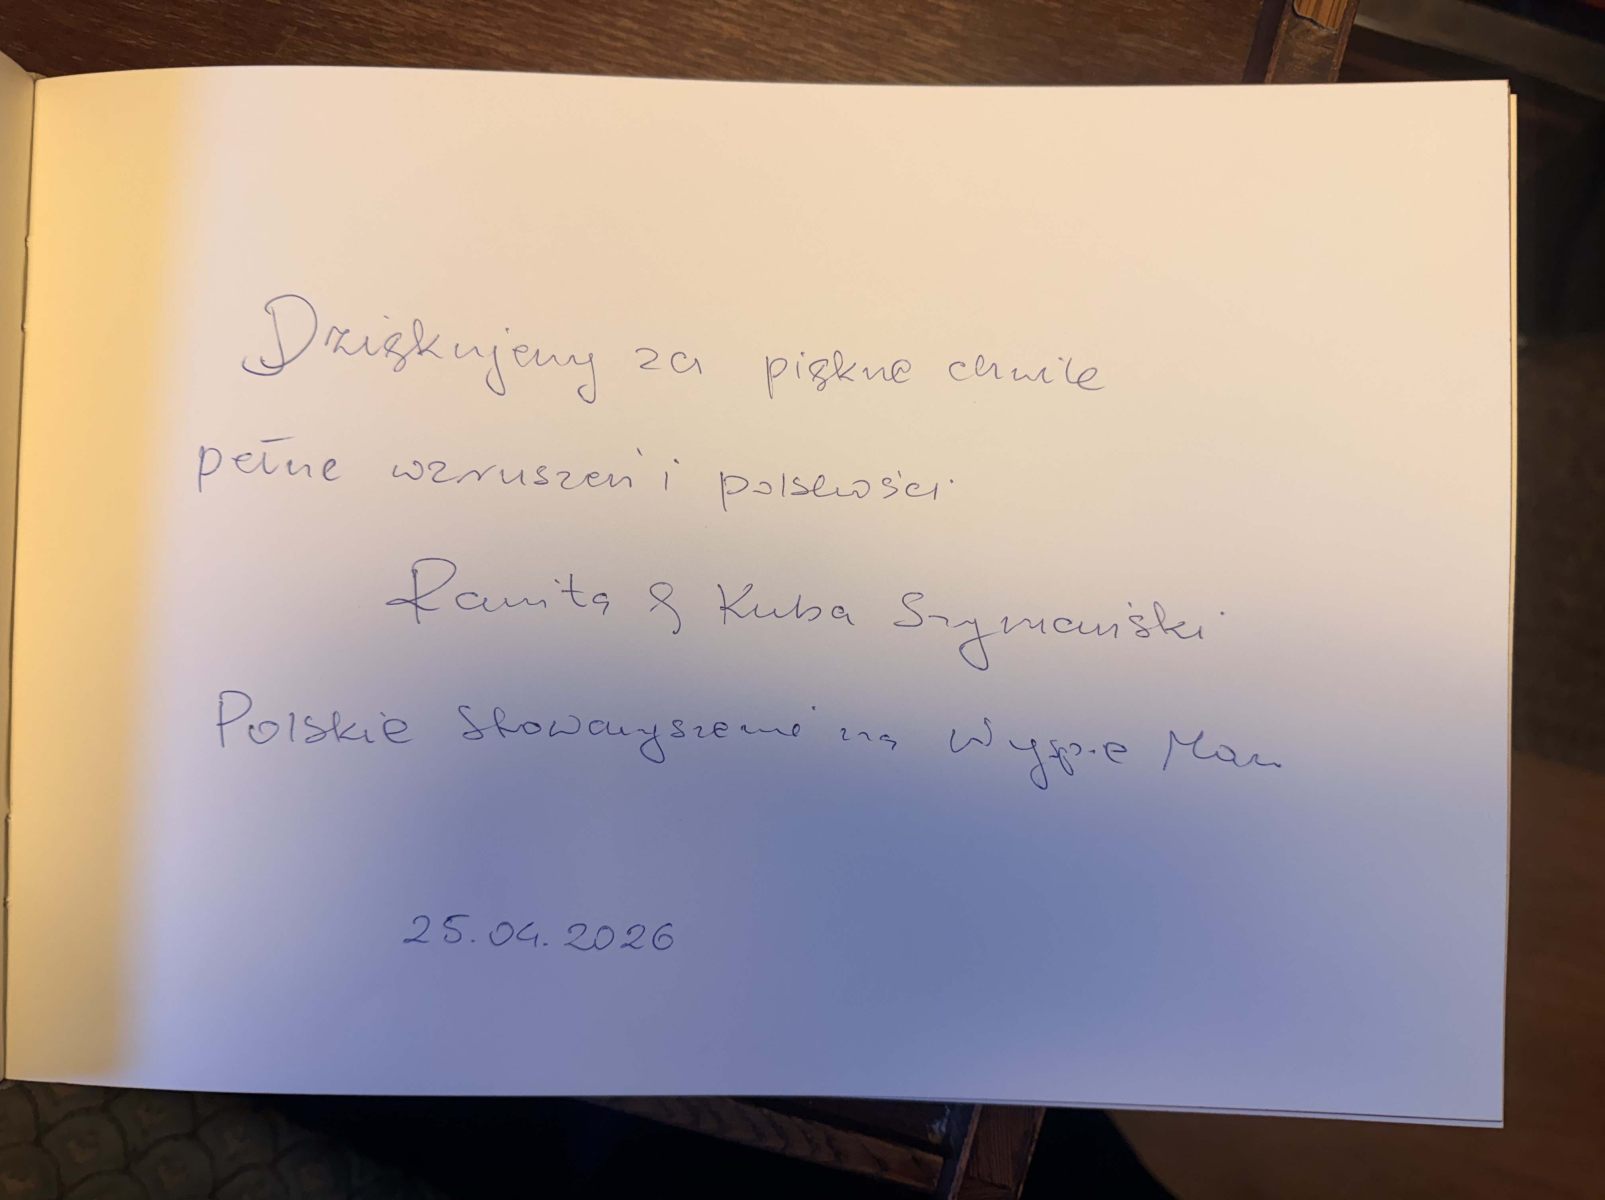 Dziękujemy za piękne chwile
pełne wzruszeń i polskości
& Kuba Szymański
Polskie Stowarzyszenie na Wyspie Man
25.04.2026